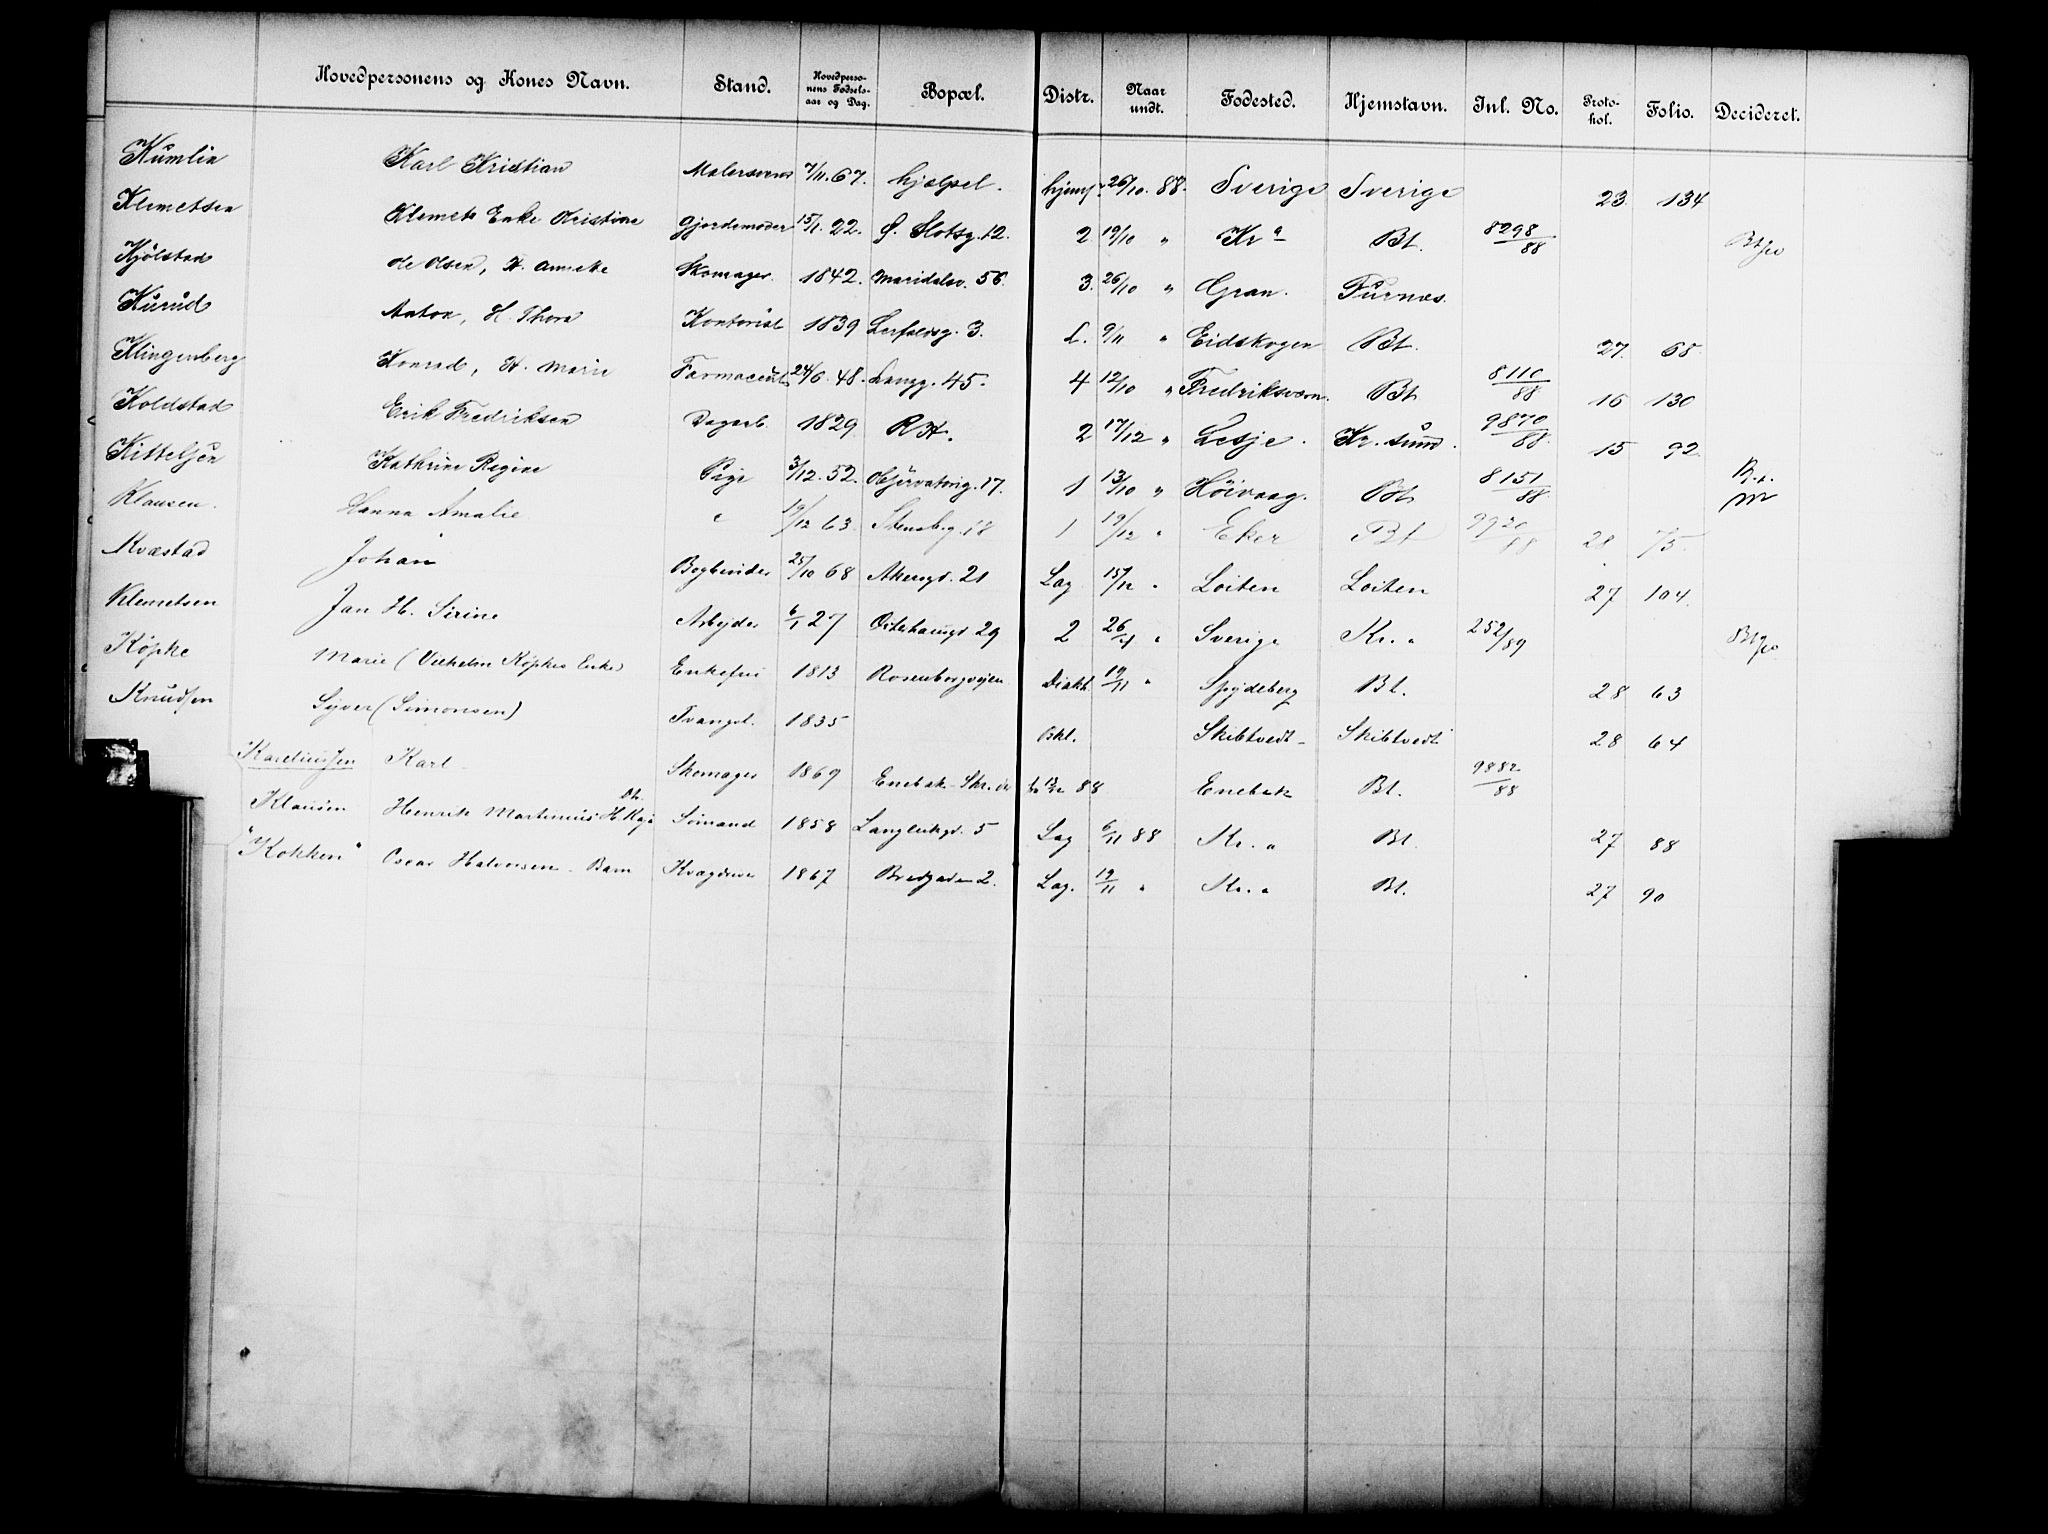 Hovedpersonens og Kones Navn. Stand. Hovedperso-nens Fødsels-aar og Dag. Bopæl. Distr. Naar undt. Fødested. Hjemstavn. Inl. No. Proto-kol. Folio. Decideret.
Kumlin Karl Kristian Malersvend 7/11.67. hjælpsl. hjemf. 26/10.88. Sverige Sverige 23. 134
Klemetsen Klemets Enke Kristine Gjordemoder 15/1.22. S. Slotsg. 12. 2 19/10 " Kr a Bt. 8298/88
Kjølstad Ole Olsen, H. Anneke Skomager 1842. Maridalsv. 56. 3. 26/10 " Gran. Furnæs.
Kurud Anton, H. Thora Kontorist 1839 Lerfaldsg. 3. L. 9/11 " Eidskogen Bt. 27. 68.
Klingenberg Konrad, H. Marie Farmaceut 24/6.48. Langg. 45. 4 12/10 " Fredriksværn. Bt 8110/88 16 130
Koldstad Erik Fredriksen Dagarb. 1829. RH. 2 17/12 " Lesje. Kr. sund. 9870/88. 15 92
Kittelsen Kathrine Regine Pige 3/12.52. Observatorig. 17. 1 13/10 " Höivaag. Bt 8151/88.
Klausen. Hanna Amalie " 19/12 63. Stensbg. 18 1 19/12 " Eker Bt 9920/88 28 75.
Kvæstad Johan Bogbinder 25/10 68 Akersgd. 21 Lag 15/12 " Löiten Löiten 27 104.
Klemetsen Jan H. Sirine Arbejder 6/1 27 Östehausgd. 29 2 26/4 " Sverige Kr. a 252/89
Köpke Marie (Vilhelm Köpkes Enke) Enkefru 1813 Rosenborgvejen Diakh. 19/11 " Spydeberg Bt. 28 63
Knudsen Syver (Simonsen) Tvangsl. 1835 Bkl. Skibtvedt Skibtvedt 28 64
Kareliussen Karl Skomager 1869 Enebak 88 Enebak Bt. 9882/88
Klausen Henrik Martinius H. Kaja Sömand 1858 Langleikgd. 5 Lag 6/11 88 Kr. a Bt. 27 88
"Kokken" Oscar Halvorsen Barn 1867 Bredgaden 2. Lag. 19/11 " Kr. a Bt. 27 90